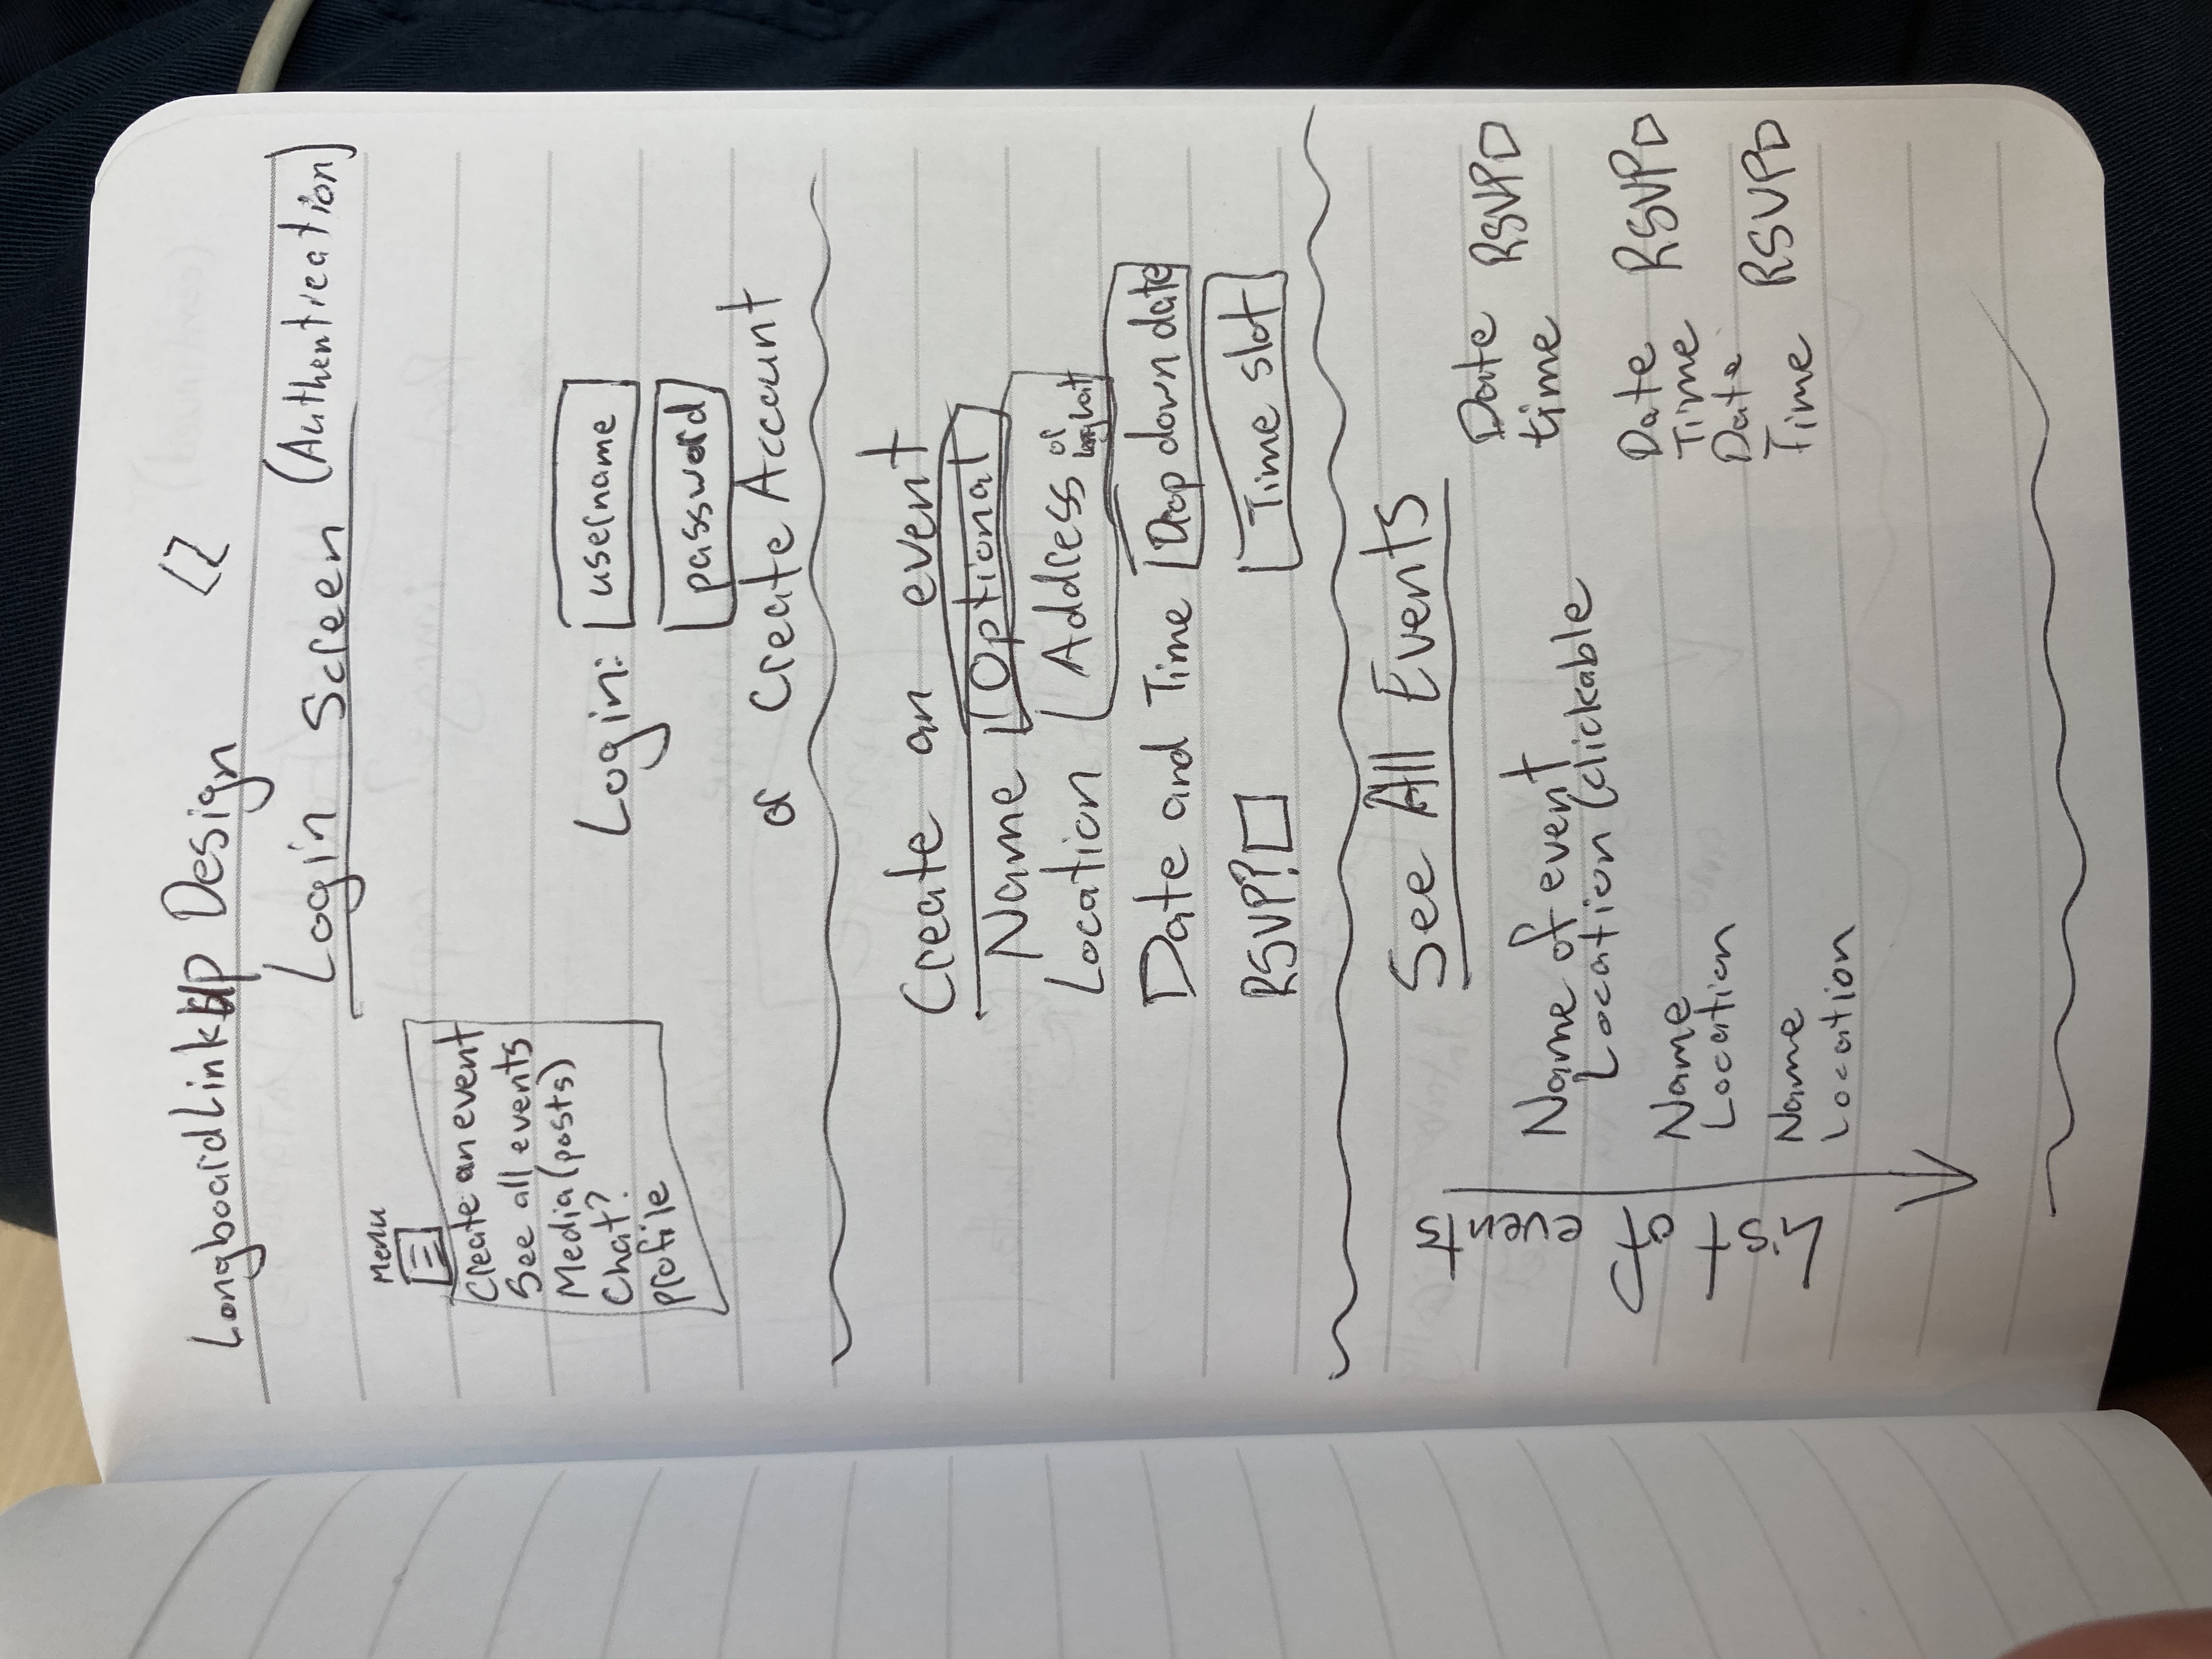 LongboardLinkUp Design
Login Screen (Authentication)
Menu
Create an event
See all events
Media (posts)
Chat?
profile
Login: username
password
or Create Account
Create an event
Name Optional
Location Address or
Date and Time Drop down date
RSVP? Time slot
See All Events
List of events
Name of event
Location (clickable
Date
time
RSVP
Name
Location
Date
Time
RSVP
Name
Location
Date
Time
RSVP